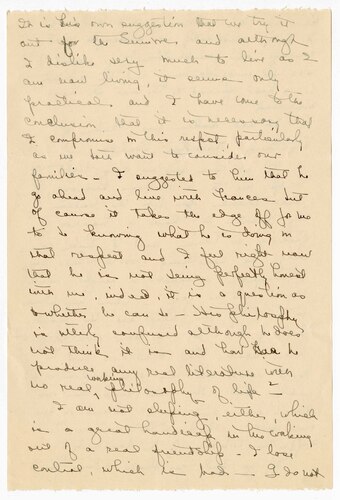 It is his own suggestion that we try it
out for the Summer and although
I dislike very much to live as I
am now living, it seems only
practical, and I have come to the
conclusion that it is necessary that
I compromise in this respect, particularly
as we both want to consider our
families - I suggested to him that he
go ahead and live with Frances but
of cause it takes the edge off for me
to knowing what he is doing in
that respect and I feel right now
that he is not being perfectly honest
with me, indeed, it is a question as
whether he can so - His philosophy
is utterly confused although he does
not think it is and how can he
produce any real literature with
no real working philosophy of life?
I am not sleeping, either, which
is a great handicap in the working
out of a real friendship - I lose
control, which is bad - I do not